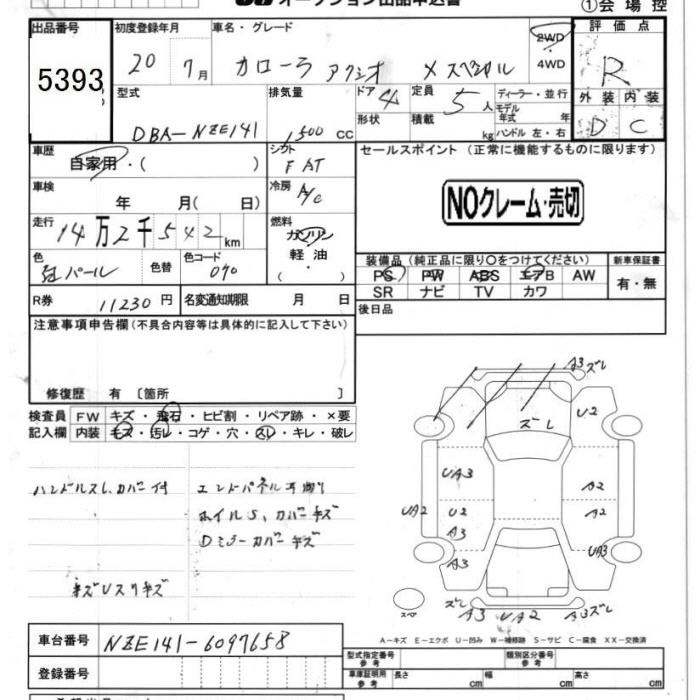 オークション出品申込書
①会場控
出品番号
5393
初度登録年月
20 7月
車名・グレード
カローラ アクシオ X スペシャル
2WD
4WD
評価点
R
外装 内装
D C
型式
DBA-NZE141
排気量
1500 CC
ドア 4
形状
定員 5人
積載 kg
ディーラー・並行
モデル年式 年
ハンドル 左・右
車歴
自家用・( )
シフト
FAT
車検
年 月( 日)
冷房
A/C
走行
14万2千542km
燃料
ガソリン
軽油
( )
色
パール
色替
色コード
070
R券
11230円
名変通知期限 月 日
セールスポイント (正常に機能するものに限ります)
NOクレーム・売切
装備品(純正品に限り○をつけてください)
PS PW ABS エアB AW
SR ナビ TV カワ
新車保証書
有・無
後日品
注意事項申告欄(不具合内容等は具体的に記入して下さい)
修復歴 有 〔箇所 〕
検査員 FW キズ・飛石・ヒビ割・リペア跡・×要
記入欄 内装 キズ・汚レ・コゲ・穴・スレ・キレ・破レ
ハンドルスレ カバー付
ホイルS、カバーキズ
Dミラーカバーキズ
A3 ズレ
ズレ
U2
UA3
A2
UA2
U2
A2
A3
UA3
A3
スペア
ズレ
A3
UA2
A3ズレ
A-キズ E-エクボ U-凹み W-補修跡 S-サビ C-腐食 XX-交換済
車台番号
NZE141-6097658
登録番号
型式指定番号 参考
類別区分番号 参考
車庫証明用 参考
長さ cm
幅 cm
高さ cm